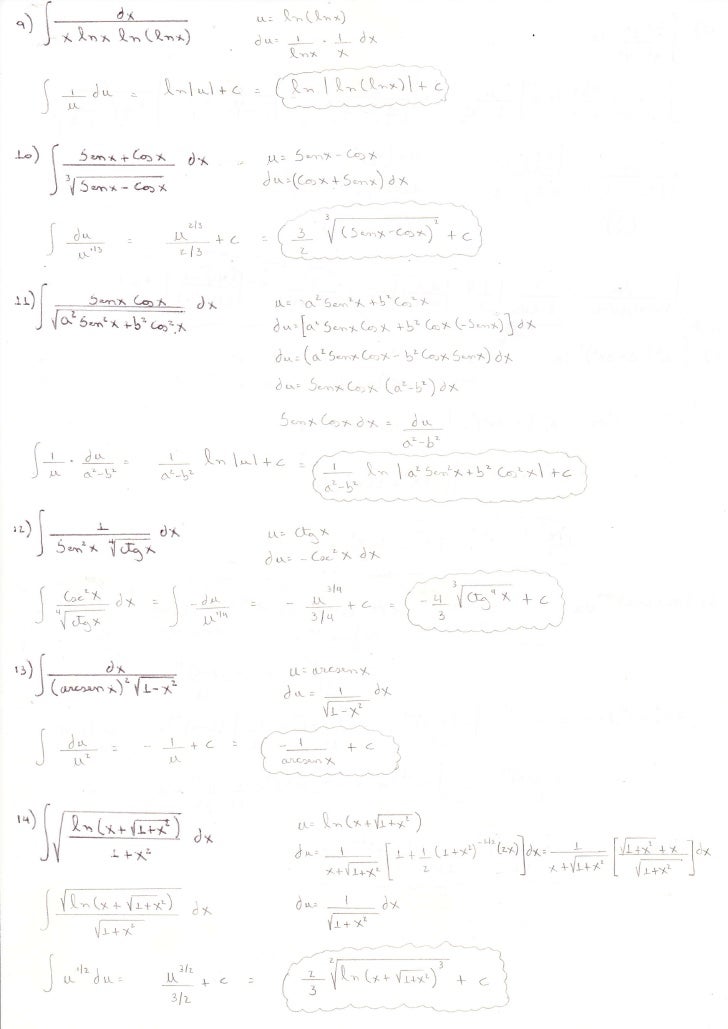 9) ∫ dx / (x lnx ln(lnx))    u= ln(lnx)
du= 1/lnx · 1/x dx
∫ 1/u du = ln|u|+c = ln|ln(lnx)|+c
10) ∫ (Senx+Cosx) / ∛(Senx-Cosx) dx    u= Senx-Cosx
du=(Cosx+Senx)dx
∫ du/u^(1/3) = u^(2/3) / (2/3) + c = 3/2 ∛(Senx-Cosx)² + c
11) ∫ Senx Cosx / √(a² Sen²x + b² cos²x) dx    u= a² Sen²x + b² Cos²x
du=[a² Senx Cosx + b² Cosx (-Senx)]dx
du=(a² Senx Cosx - b² Cosx Senx)dx
du= Senx Cosx (a²-b²)dx
Senx Cosx dx = du / (a²-b²)
∫ 1/u · du/(a²-b²) = 1/(a²-b²) ln|u|+c = 1/(a²-b²) ln|a² Sen²x + b² Cos²x|+c
12) ∫ 1 / (Sen²x ∜(ctgx)) dx    u= ctgx
du= -Csc²x dx
∫ Csc²x / ∜(ctgx) dx = ∫ -du/u^(1/4) = - u^(3/4) / (3/4) + c = -4/3 ∛(Ctg⁴x) + c
13) ∫ dx / ((arcsenx)² √(1-x²))    u= arcsenx
du= 1/√(1-x²) dx
∫ du/u² = - 1/u + c = - 1/arcsenx + c
14) ∫ √( ln(x+√(1+x²)) / (1+x²) ) dx    u= ln(x+√(1+x²))
du= 1/(x+√(1+x²)) [1 + 1/2 (1+x²)^(-1/2) (2x)]dx = 1/(x+√(1+x²)) [(√(1+x²) + x)/√(1+x²)]dx
∫ √(ln(x+√(1+x²))) / √(1+x²) dx    du= 1/√(1+x²) dx
∫ u^(1/2) du = u^(3/2) / (3/2) + c = 2/3 ²√(ln(x+√(1+x²))³) + c